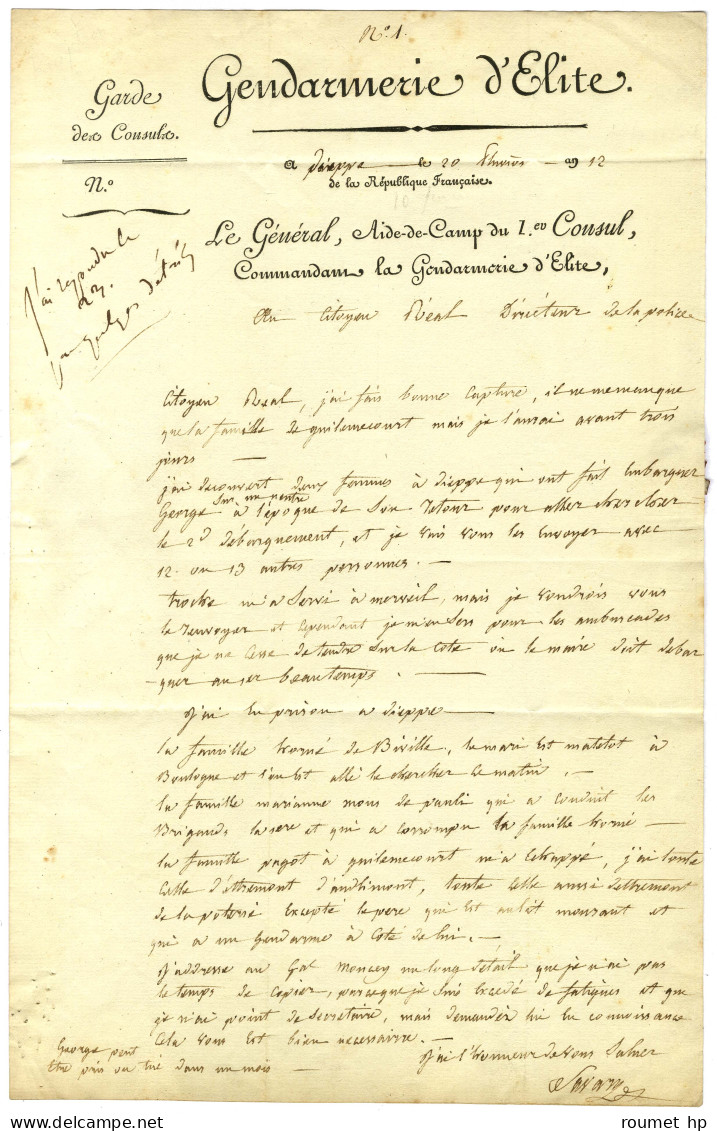 N.º 1.
Garde
des Consuls.
Gendarmerie d'Elite.
N.º
a dieppe le 20 an 12
de la République Française.
J'ai repondu le
23.
Le Général, Aide-de-Camp du 1.er Consul,
Commandant la Gendarmerie d'Elite,
Au Citoyen Réal Directeur de la police
Citoyen Real, j'ai fais bonne capture, il ne me manque
que la famille de guilemecourt mais je l'aurai avant trois
jours —
j'ai decouvert deux femmes à dieppe qui ont fait embarquer
George à l'époque de son retour pour aller chercher
le 2d débarquement, et je vais vous les envoyer avec
12. ou 13 autres personnes. —
troche m'a servi à merveil, mais je voudrois vous
le renvoyer et cependant je m'en sers pour les ambuscades
que je ne cesse de tendre sur la cote ou le maire doit debar
-quer au 1er beau temps. —
J'ai en prison a dieppe —
la famille horné de Biville, le mari est matelot à
Boulogne et l'on est allé le chercher ce matin. —
la famille marianne mons de pauli qui a conduit les
Brigands et qui a corrompu la famille horné —
la famille pagot à guilemecourt m'a echappé, j'ai toute
celle d'ettremont d'audimont, toute celle aussi dettremont
de la poterie excepté le pere qui est au lit mourant et
qui a un Gendarme à coté de lui. —
J'addresse au Gal Moncey un long détail que je n'ai pas
le temps de copier, parceque je suis excedé de fatigues et que
je n'ai point de secretaire, mais demandez lui en connoissance
cela vous est bien necessaire. —
George peut
etre pris ou tué dans un mois —
J'ai l'honneur de vous saluer
Savary
roumet hp